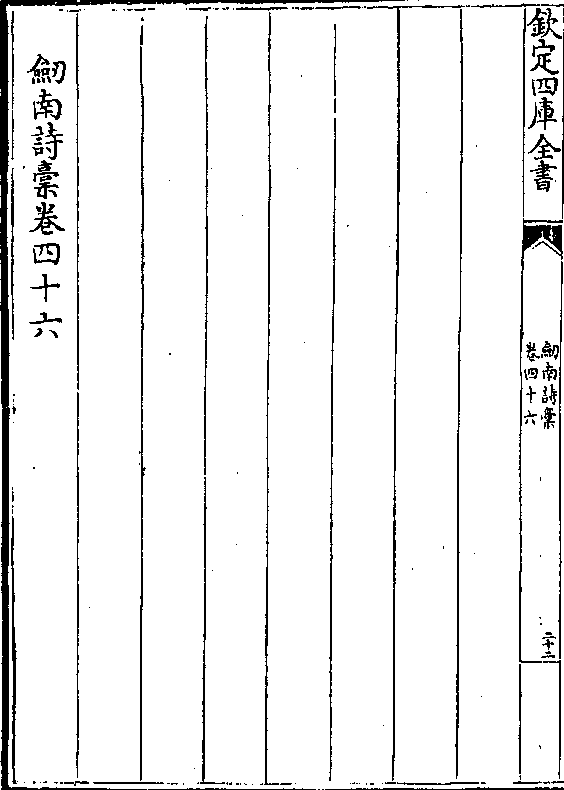 欽定四庫全書
劒南詩槀
卷四十六
二十二
劒南詩槀卷四十六